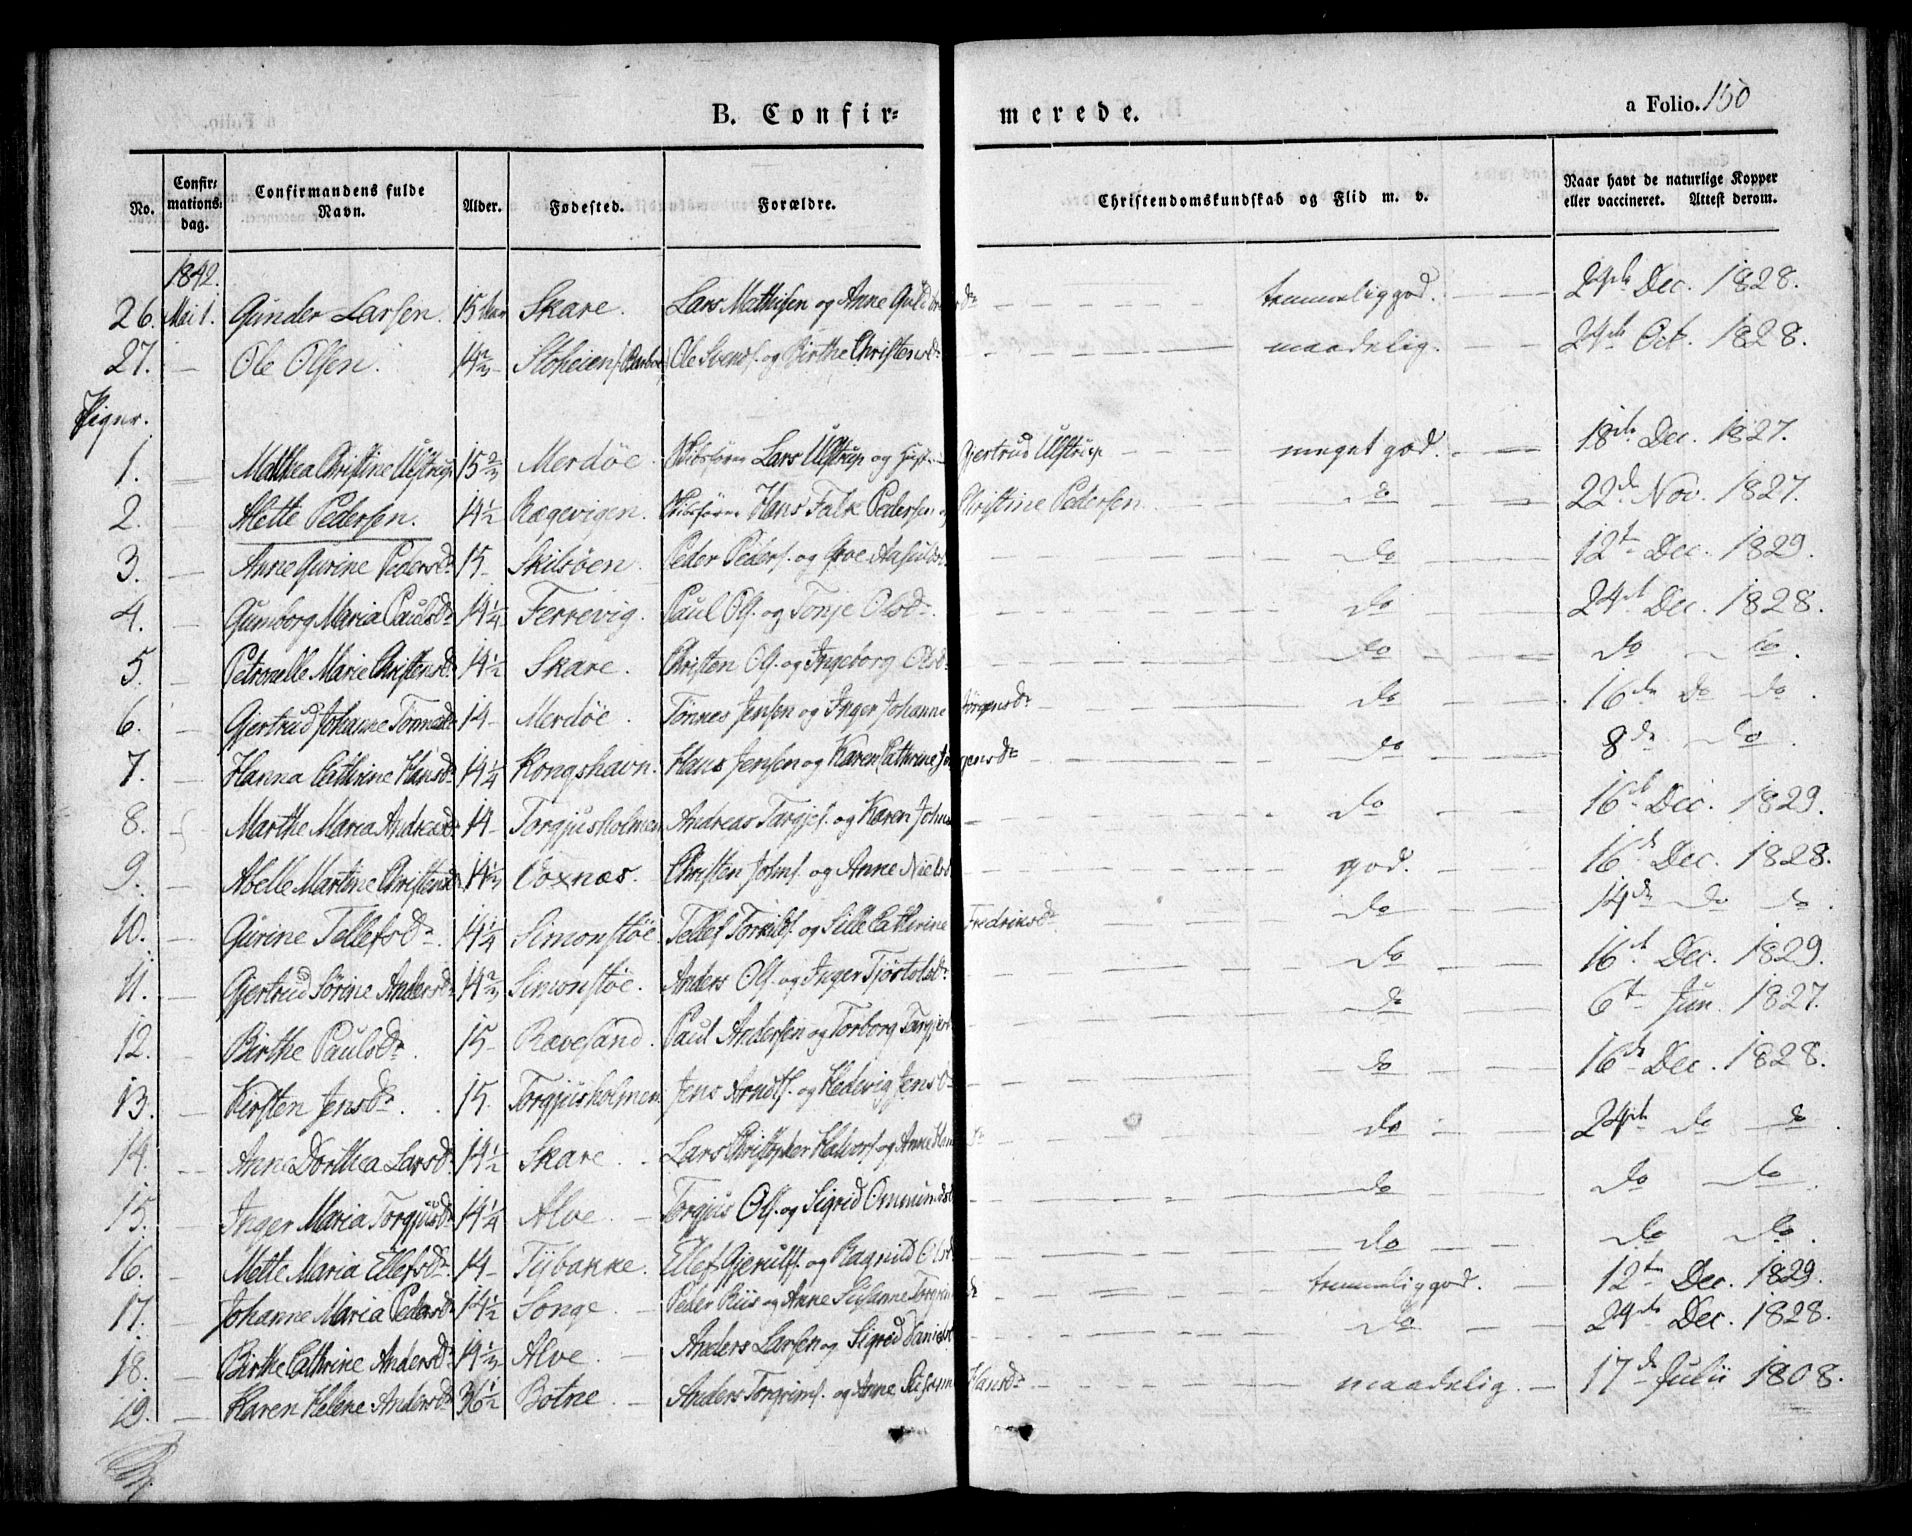 B. Confir= merede. a Folio. 150
No. Confir= mations= dag. Confirmandens fulde Navn. Alder. Fødested. Forældre. Christendomskundskab og Flid m. v. Naar havt de naturlige Kopper eller vaccineret. Attest derom.
1842.
26. Mai 1. Gunder Larsen. 15 Skare. Lars Mathisen og Anne temmelig god. 24de Dec. 1828.
27. — Ole Olsen. 14 2/3 Stoheien Ole Svends. og Birthe Christensdr maadelig. 24de Oct. 1828.
Piger.
1. — Mathea Christine Ulstrup 15 2/3 Merdøe. Skibsfører Lars Ulstrup og Hust. Gjertrud Ulstrup meget god. 18de Dec. 1827.
2. Mette Pedersen. 14 1/2 Rægevigen. Skibsfører Hans Falk Pedersen og Christine Pedersen do 22de Nov. 1827.
3. — Anne Gurine Pedersdr 15 Skilsøen Peder Peders. og do 12te Dec. 1829.
4. — Gunborg Maria Paulsdr 14 1/4 Ferrevig. Paul Ols. og Tonje Olsdr. do 24de Dec. 1828.
5. — Petronelle Marie Christensdr 14 1/2 Skare. Christen Ols. og Ingeborg Olsdr do do do.
6. — Gjertrud Johanne Tønnesdr 14 Merdøe. Tønnes Jensen og Inger Johanne Jørgensdr do 16de do do.
7. — Hanna Cathrine Hansdr 14 1/4 Kongshavn. Hans Jensen og Karen Cathrine Jørgensdr do 8de do.
8. Marthe Maria Andreasdr 14 Torgjusholmen Andreas Targjs. og Karen Johns do 16de Dec. 1829.
9. — Abelle Martine Christensdr 14 1/3 Voxnæs. Christen Johns. og Anne Nielsd god. 16de Dec. 1828.
10. — Gurine Tellefsdr. 14 1/4 Simonstøe. Tellef Torkilds. og Sille Cathrine Fredriksdr do 14de do do.
11. — Gjertrud Sørine Andersdr 14 2/3 Simonstøe. Anders Ols. og Inger Tjøstolsdr do 16de Dec. 1829.
12. — Birthe Paulsdr. 15 Rævesand. Paul Andersen og Torborg Targjusd do 6te Jun. 1827.
13. — Kirsten Jensdr. 15. Torgjusholmen Jens Arndts. og Hedevig Jensdr do 16de Dec. 1828.
14. — Anne Dorthea Larsdr. 14 1/2 Skare. Lars Christopher Halvors. og Anne do 24de do do.
15. — Inger Maria Torgjusdr 14 1/4 Alve. Torgjus Ols. og Sigrid Ommundsd do do do.
16. — Mette Maria Ellefsdr. 14 Tybakke. Ellef Gjerulfs. og Ragnild Olsd do do do.
17. — Johanne Maria Pedersdr 14 1/2 Songe. Peder Riis og Anne Susanne temmelig god. 12te Dec. 1829.
18. — Birthe Cathrine Andersdr 14 1/3 Alve. Anders Larsen og Sigrid Danielsd do 24de Dec. 1828.
19. — Karen Helene Andersdr 36 1/2 Botne. Anders Torgrims. og Anne Susanne Hansdr maadelig. 17de Julii 1808.